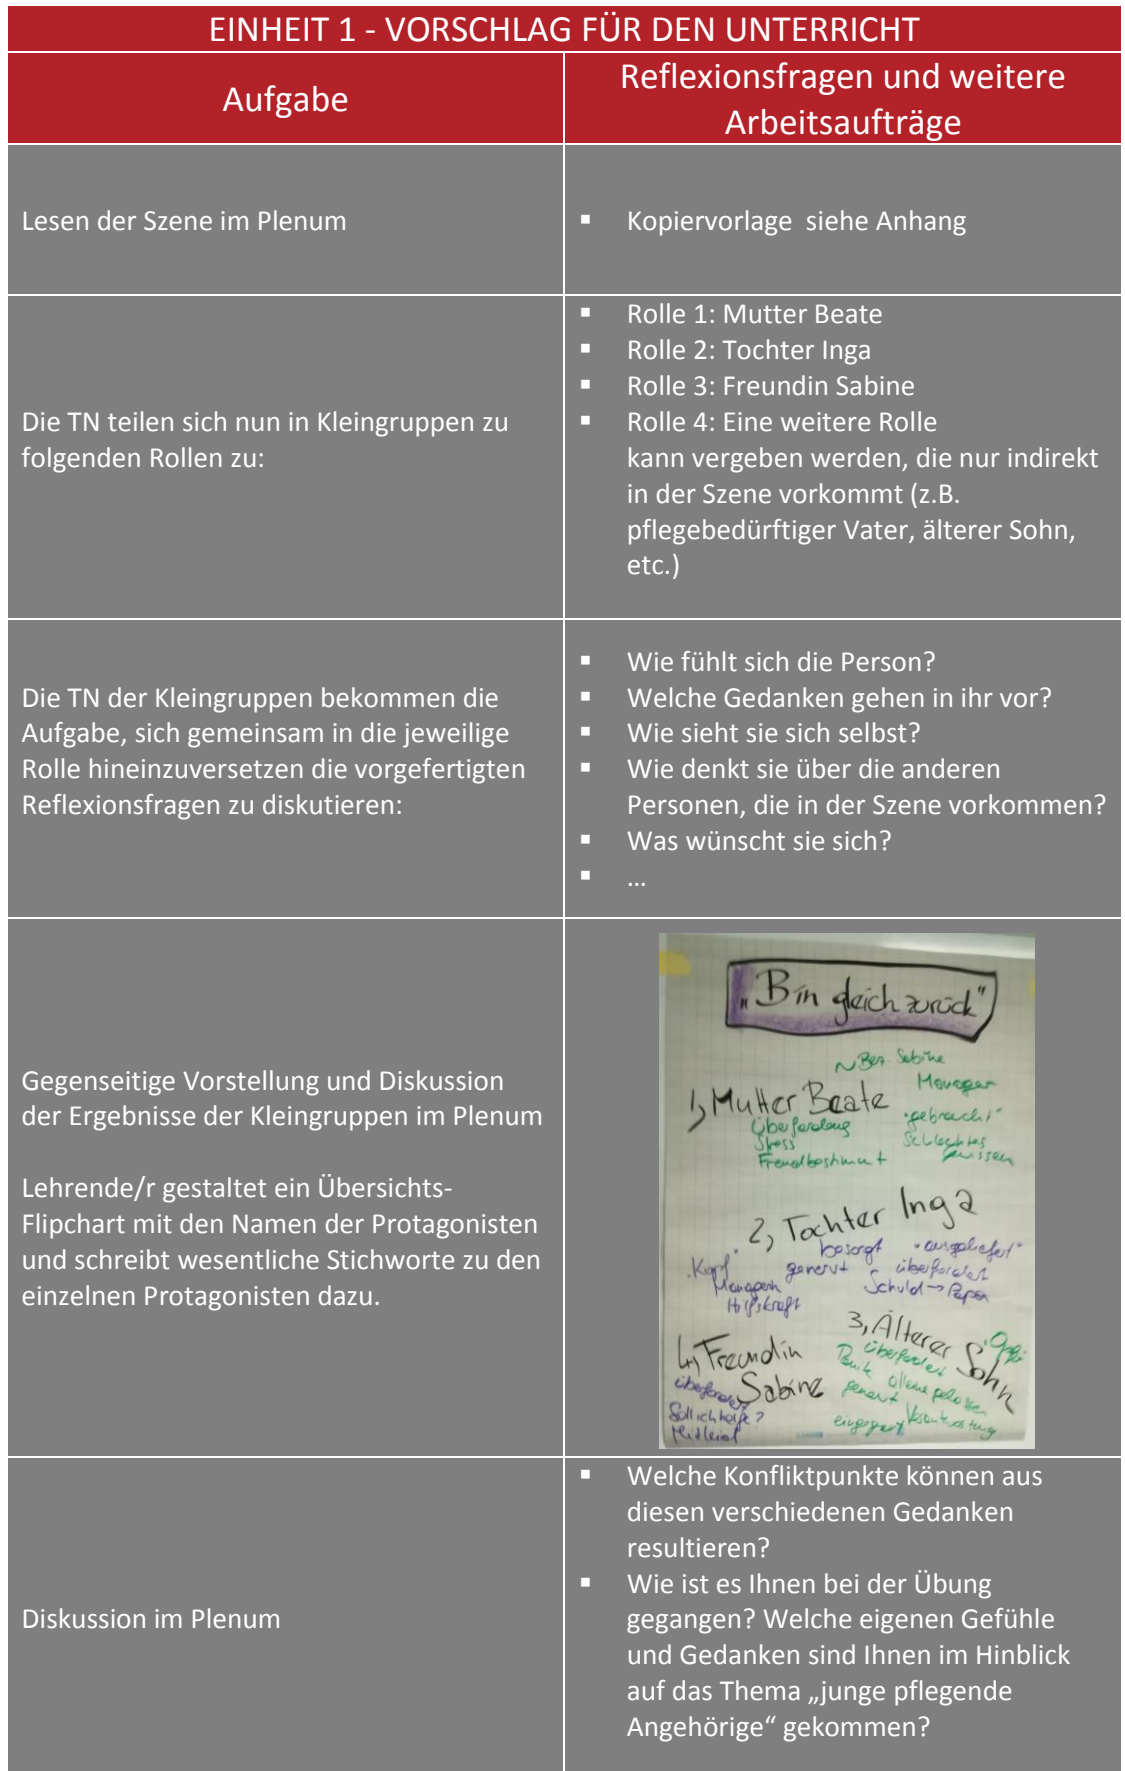 EINHEIT 1 - VORSCHLAG FÜR DEN UNTERRICHT
Aufgabe
Reflexionsfragen und weitere
Arbeitsaufträge
Lesen der Szene im Plenum
▪ Kopiervorlage siehe Anhang
Die TN teilen sich nun in Kleingruppen zu
folgenden Rollen zu:
▪ Rolle 1: Mutter Beate
▪ Rolle 2: Tochter Inga
▪ Rolle 3: Freundin Sabine
▪ Rolle 4: Eine weitere Rolle
kann vergeben werden, die nur indirekt
in der Szene vorkommt (z.B.
pflegebedürftiger Vater, älterer Sohn,
etc.)
Die TN der Kleingruppen bekommen die
Aufgabe, sich gemeinsam in die jeweilige
Rolle hineinzuversetzen die vorgefertigten
Reflexionsfragen zu diskutieren:
▪ Wie fühlt sich die Person?
▪ Welche Gedanken gehen in ihr vor?
▪ Wie sieht sie sich selbst?
▪ Wie denkt sie über die anderen
Personen, die in der Szene vorkommen?
▪ Was wünscht sie sich?
▪ ...
Gegenseitige Vorstellung und Diskussion
der Ergebnisse der Kleingruppen im Plenum
Lehrende/r gestaltet ein Übersichts-
Flipchart mit den Namen der Protagonisten
und schreibt wesentliche Stichworte zu den
einzelnen Protagonisten dazu.
„Bin gleich zurück"
Sabine
Manager
1, Mutter Beate
Überforderung
"gebraucht"
Stress
Schlechtes
Gewissen
Fremdbestimmt
2, Tochter Inga
besorgt "ausgeliefert"
"Kopf" genervt überfordert
Managerin Schuld → Papa
Hilfskraft
3, Älterer Sohn
überfordert
Panik alleine gelassen
genervt
eingesperrt Verantwortung
4, Freundin
Sabine
überfordert
Soll ich helfe?
Mitleid
Diskussion im Plenum
▪ Welche Konfliktpunkte können aus
diesen verschiedenen Gedanken
resultieren?
▪ Wie ist es Ihnen bei der Übung
gegangen? Welche eigenen Gefühle
und Gedanken sind Ihnen im Hinblick
auf das Thema „junge pflegende
Angehörige“ gekommen?